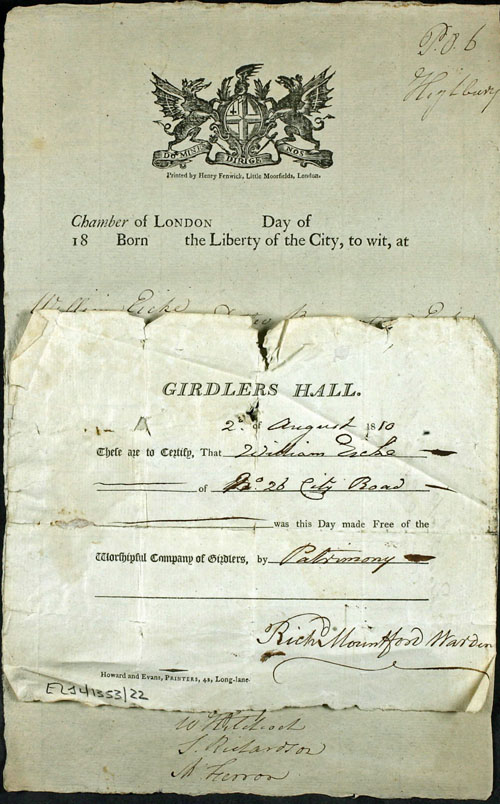 P. 8. 6
Highbury
DOMINE DIRIGE NOS
Printed by Henry Fenwick, Little Moorfields, London.
Chamber of LONDON Day of
18 Born the Liberty of the City, to wit, at
William
GIRDLERS HALL.
2d of August 1810
Theſe are to Certify, That William Eicke
of No 26 City Road
was this Day made Free of the
Worſhipful Company of Girdlers, by Patrimony
Richd Mountford Warden
Howard and Evans, PRINTERS, 42, Long-lane.
ELJL/1353/22
W Hitchcock
S. Richardson